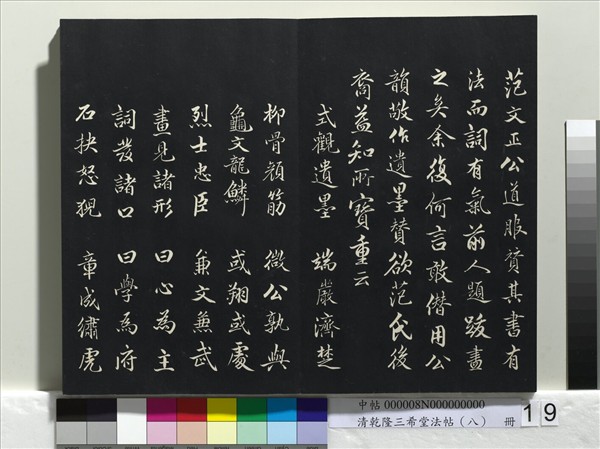 范文正公道服贊其書有
法而詞有氣前人題跋盡
之矣余復何言敢僭用公
韻敬作遺墨贊欲范氏後
裔益知所寶重云
式觀遺墨 端嚴濟楚
柳骨顏筋 微公孰與
龜文龍鱗 或翔或處
烈士忠臣 兼文兼武
畫見諸形 曰心為主
詞發諸口 曰學為府
石抉怒猊 章成繡虎
中帖 000008N000000000
清乾隆三希堂法帖（八） 冊 19